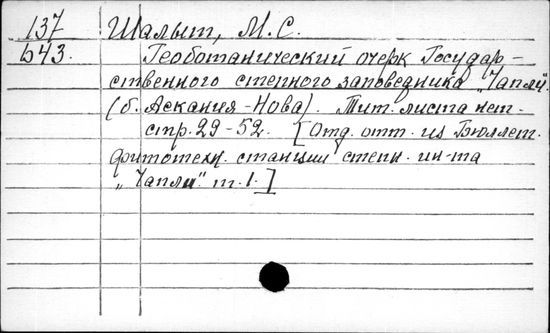 137 Шалыт, М. С.
б43. Геоботанический очерк Государ-
ственного степного заповедника „Чапли“
(б. Аскания-Нова). Тит. листа нет.
стр. 29-52. [Отд. отт. из Бюллет.
фитотехн. станции степн. ин-та
„Чапли“. т. 1.]